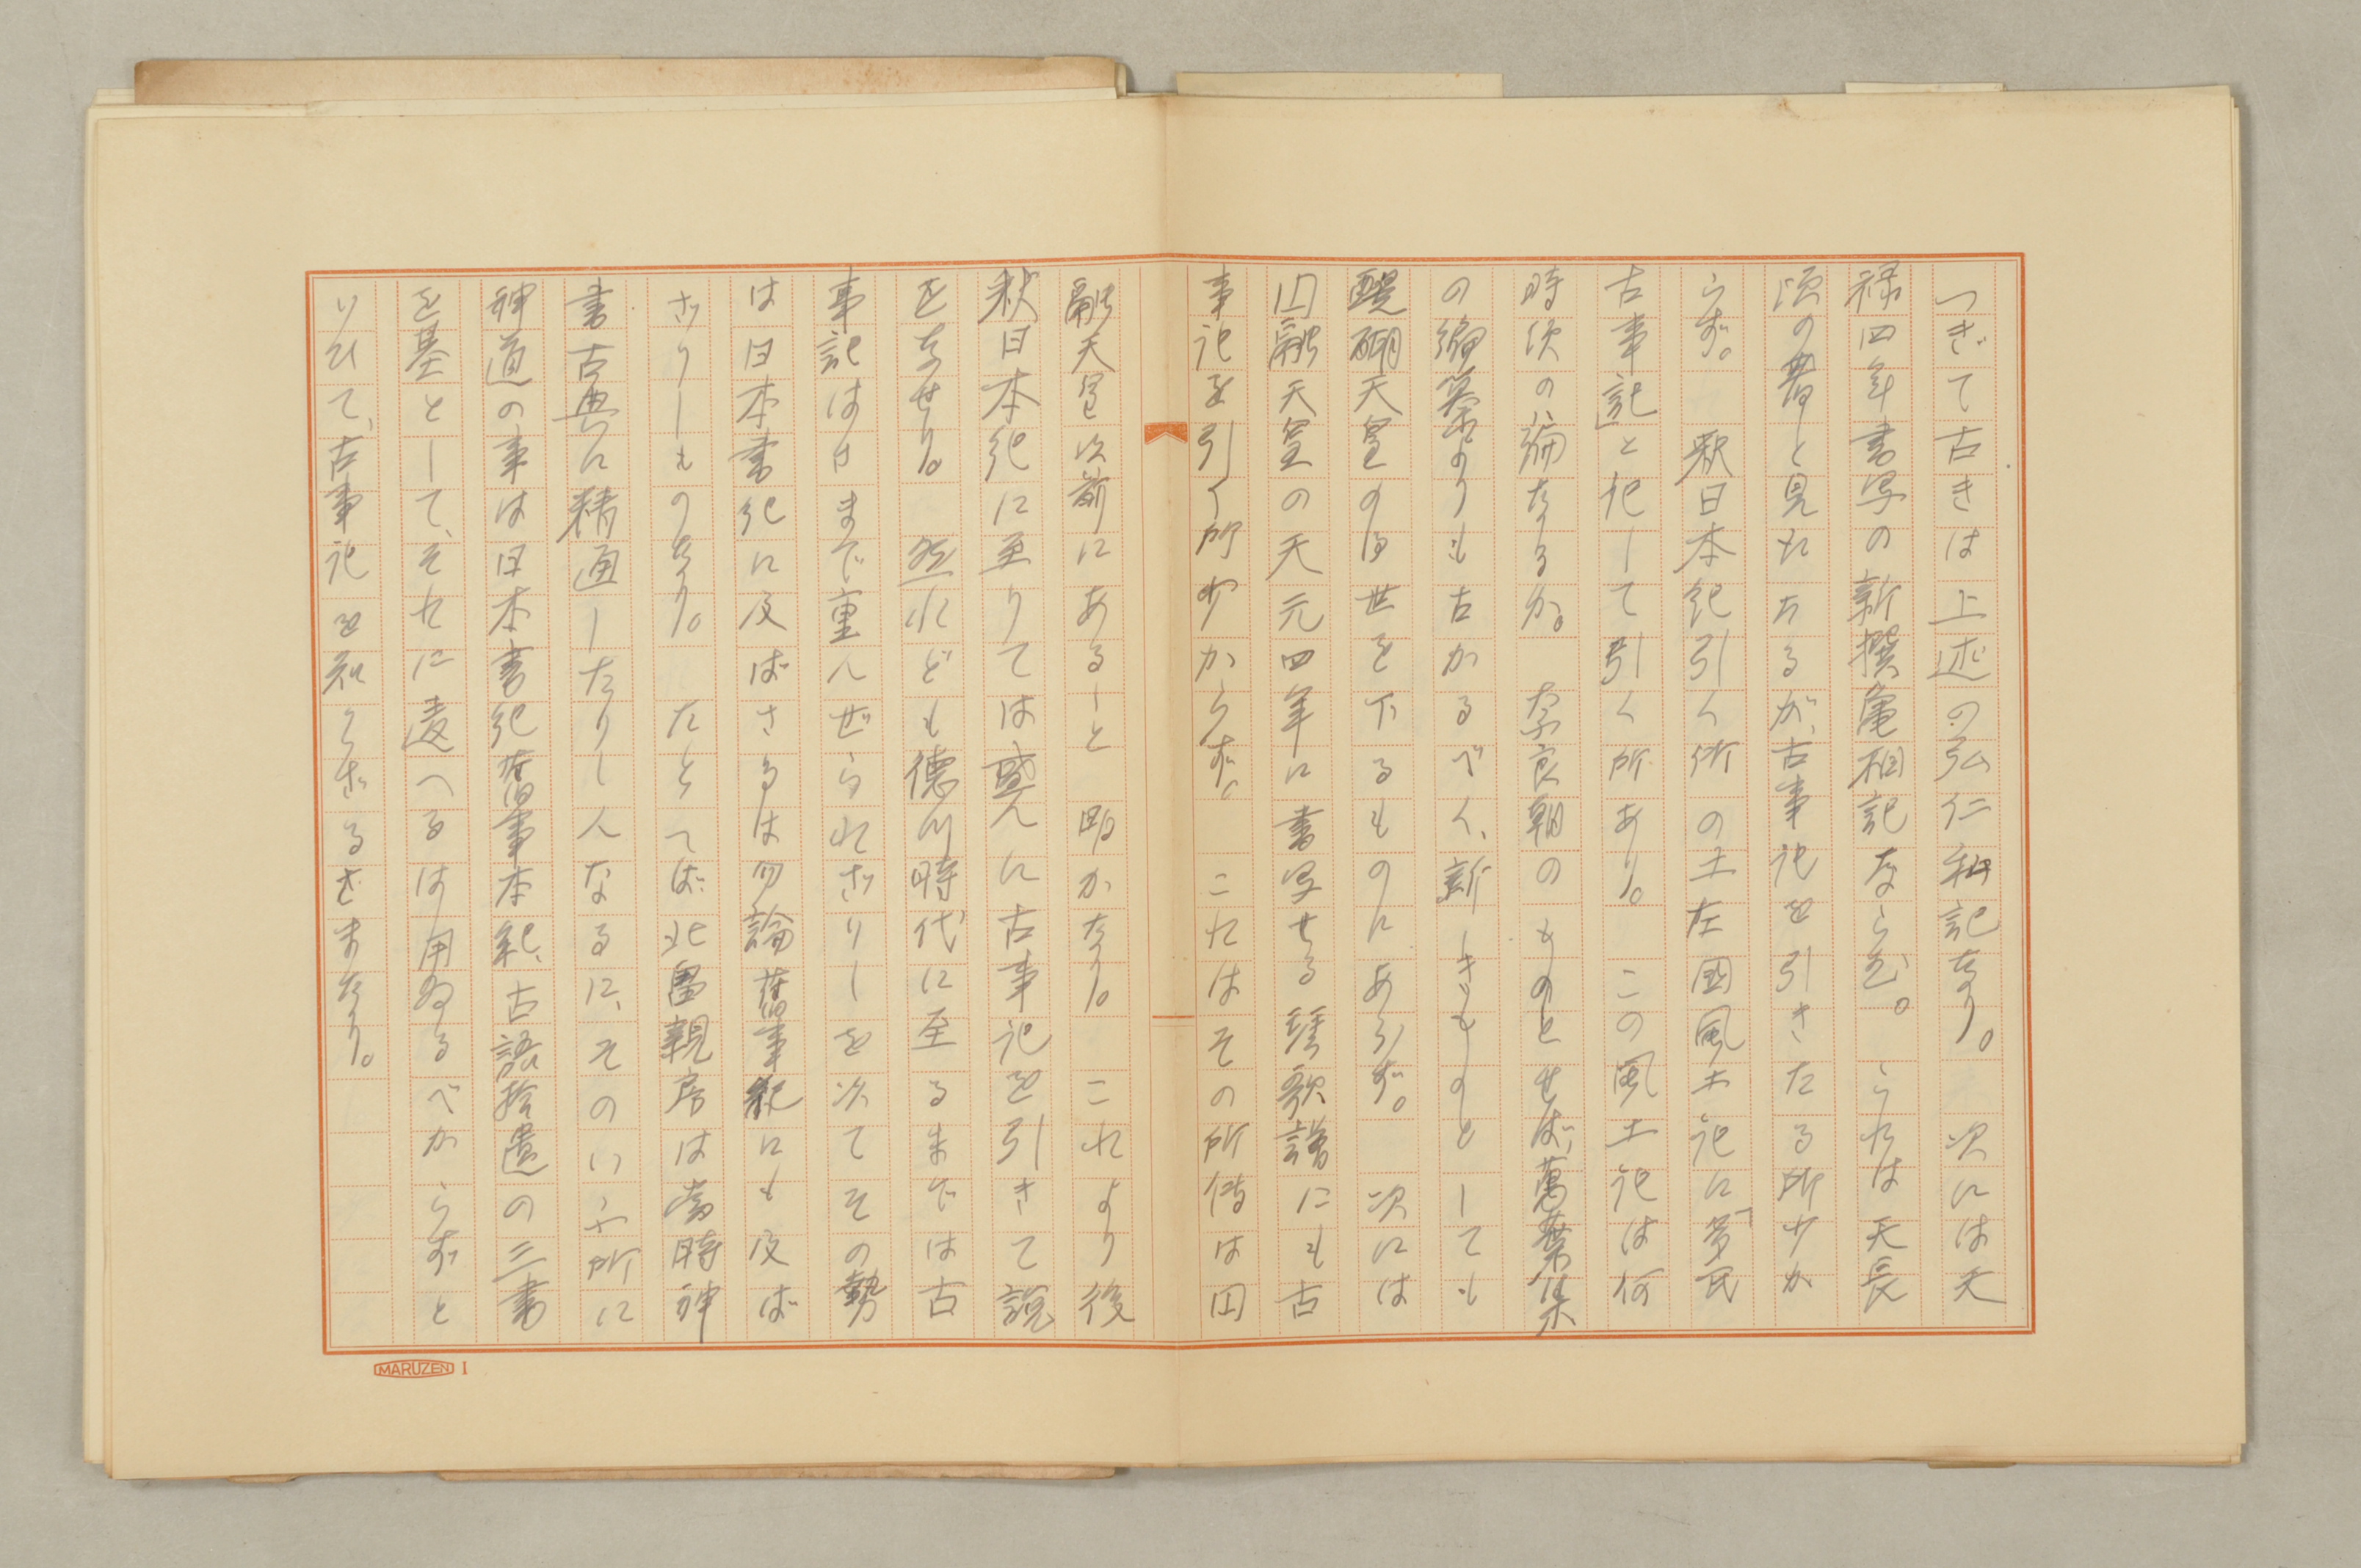 つぎて古きは上述の弘仁私記なり。　次には天
禄四年書写の新撰亀相記ならむ。　これは天長
頃の著と見えたるが、古事記を引きたる所少か
らず。　釈日本紀引く所の土左国風土記に「多氏
古事記」と記して引く所あり。　この風土記は何
時頃の編なるか。　奈良朝のものとせば、萬葉集
の編纂よりも古かるべく、新しきものとしても
醍醐天皇の御世を下るものにあらず。　次には
円融天皇の天元四年に書写せる琴歌譜にも古
事記を引く所少からず。　これはその所傳は円
融天皇以前にあること明かなり。　これより後
釈日本紀に至りては盛んに古事記を引きて説
をなせり。　然れども徳川時代に至るまでは古
事記はさまで重んぜられざりしを以てその勢
は日本書紀に及ばざるは勿論舊事紀にも及ば
ざりしものなり。　たとへば北畠親房は當時神
書古典に精通したりし人なるに、そのいふ所に
神道の事は日本書紀舊事本紀、古語拾遺の三書
を基として、それに違へるは用ゐるべからずと
いひて、古事記を知らざるさまなり。
MARUZEN 1